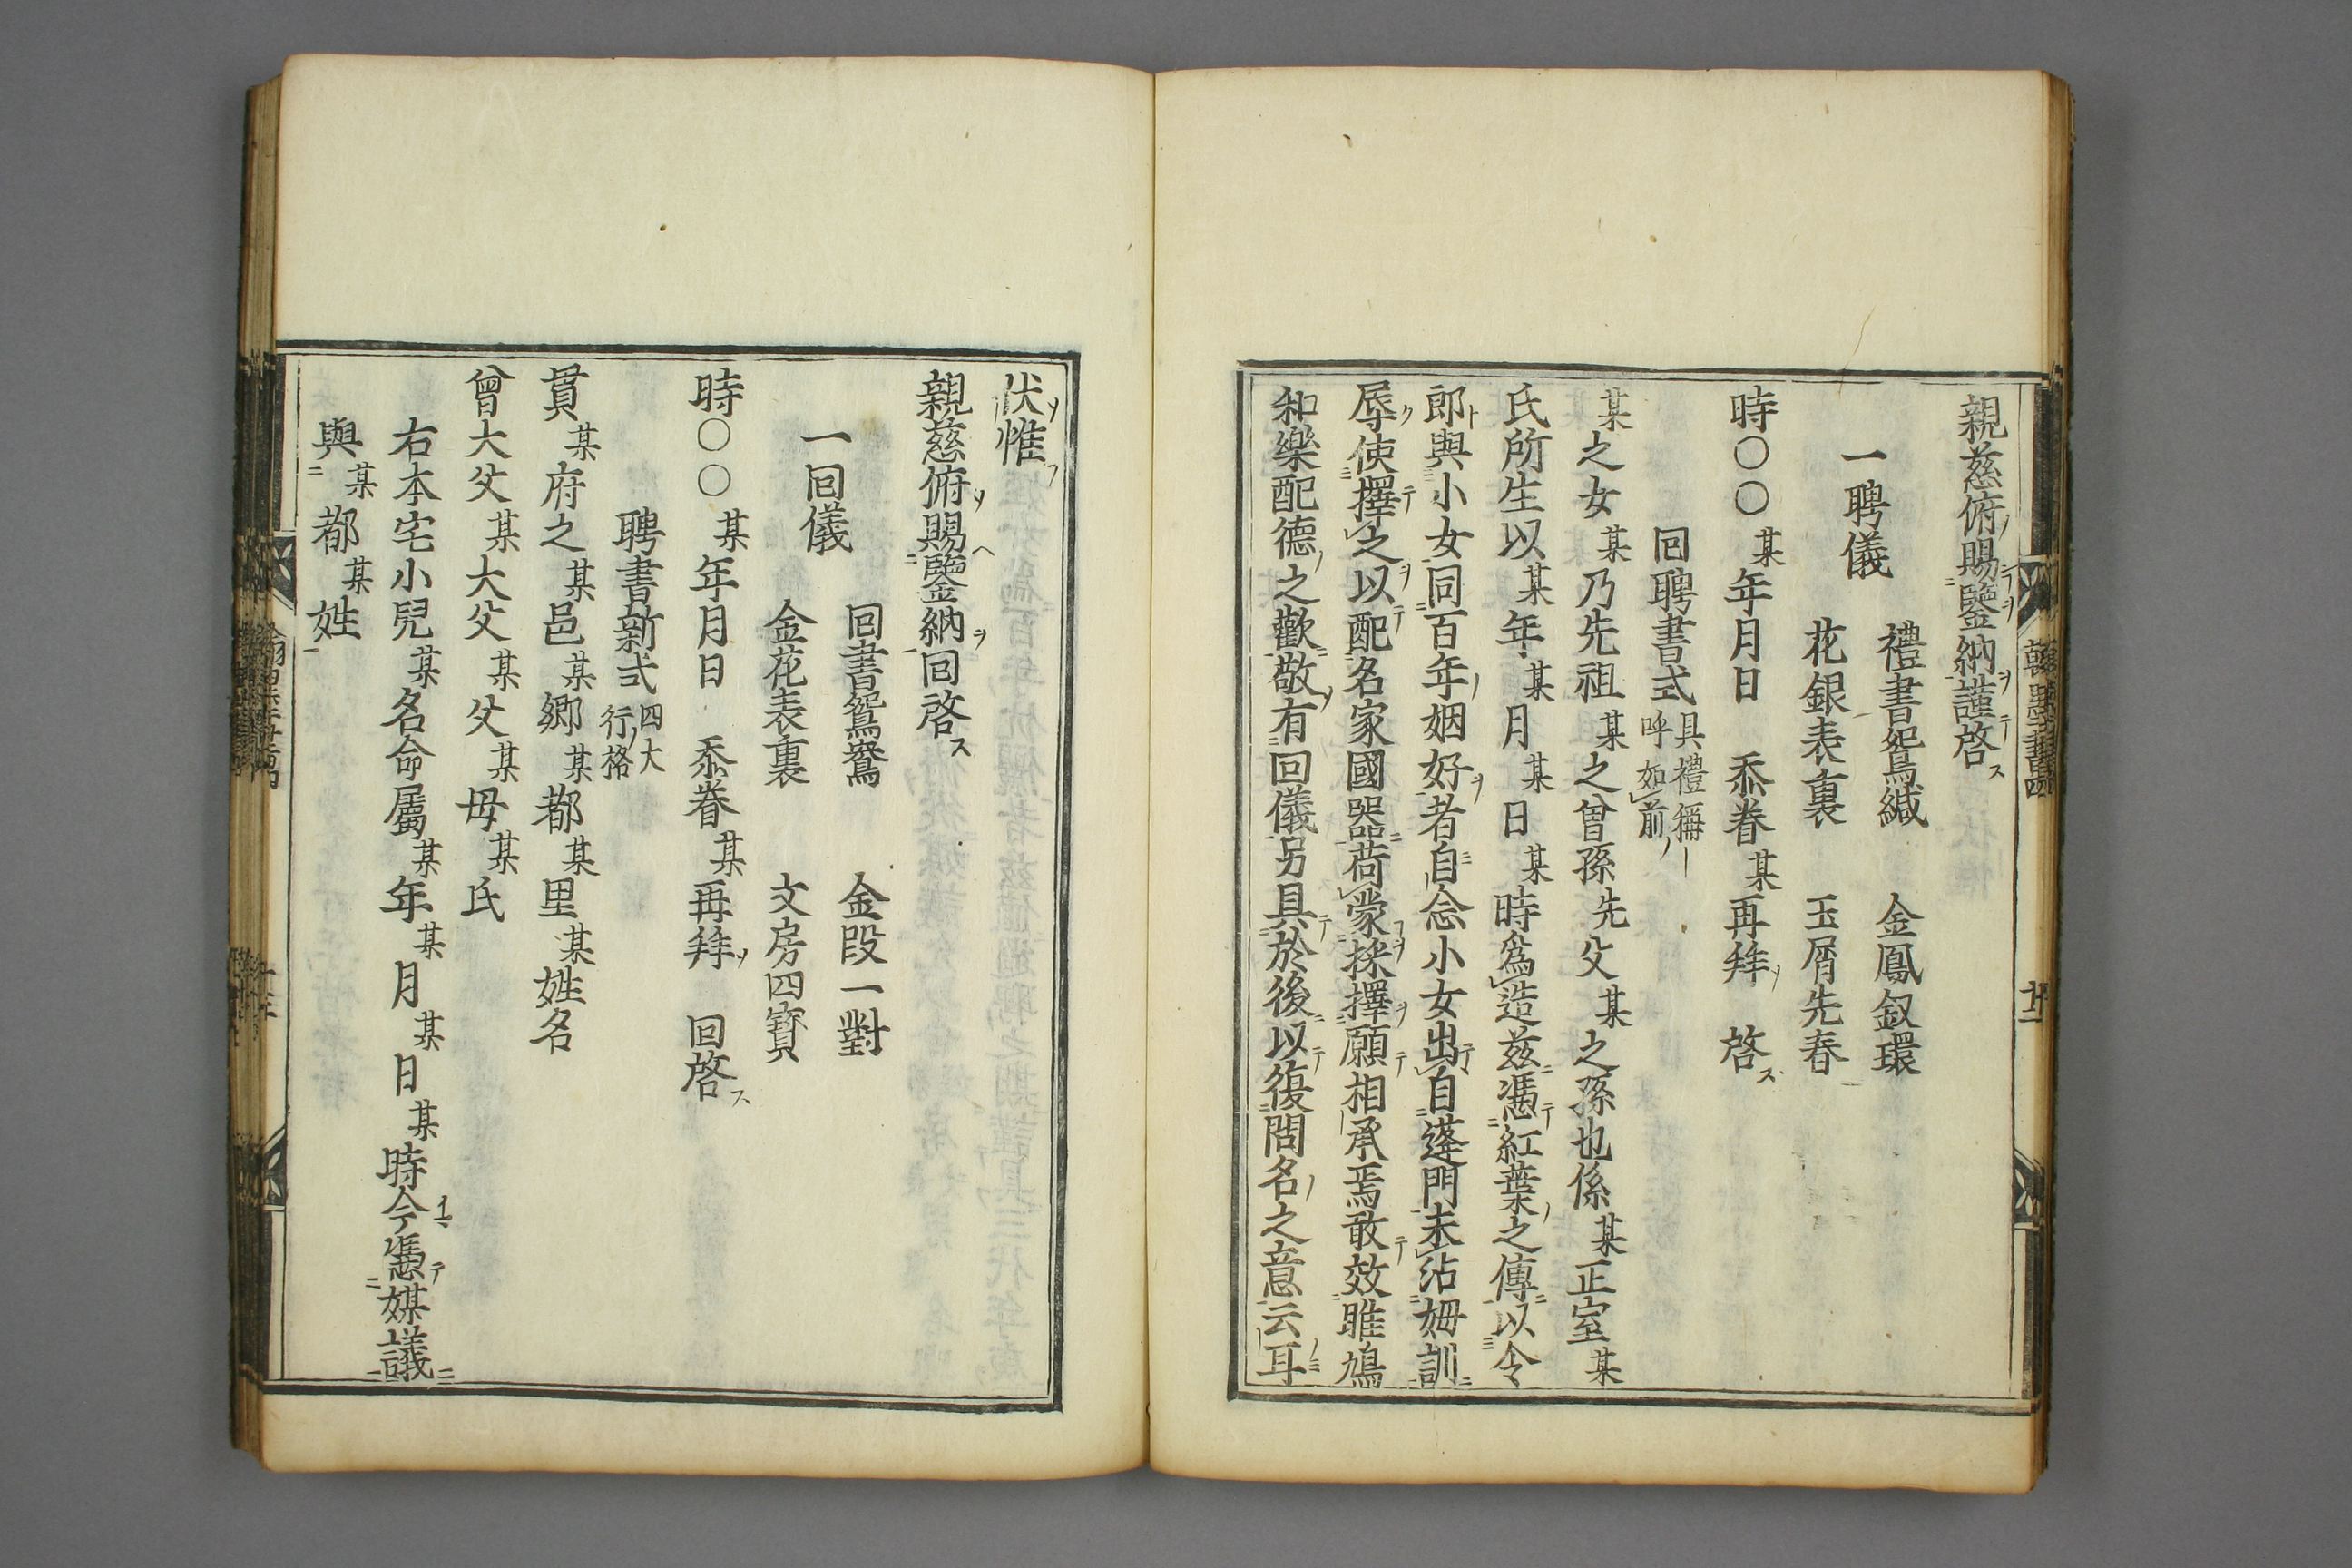 親慈俯賜鑒納謹啓
一聘儀
禮書鴛鴦緘 金鳳釵環
花銀表裏 玉屑先春
時○○某年月日 忝眷某再拜 啓
回聘書式 具禮稱呼如前
某之女某乃先祖某之曾孫先父某之孫也係某正室某
氏所生以某年某月某日某時爲造茲憑紅葉之傳以令
郎與小女同百年姻好者自念小女出自蓬門未沾姆訓
辱使擇之以配名家國器荷蒙採擇願相承焉敢效雎鳩
和樂配德之歡敬有回儀另具於後以復問名之意云耳
伏惟
親慈俯賜鑒納回啓
一回儀
回書鴛鴦 金段一對
金花表裏 文房四寳
時○○某年月日 忝眷某再拜 回啓
聘書新式 四大行格
貫某府之某邑某鄉某都某里某姓名
曾大父某大父某父某母某氏
右本宅小兒某名命屬某年某月某日某時今憑媒議
與某都某姓